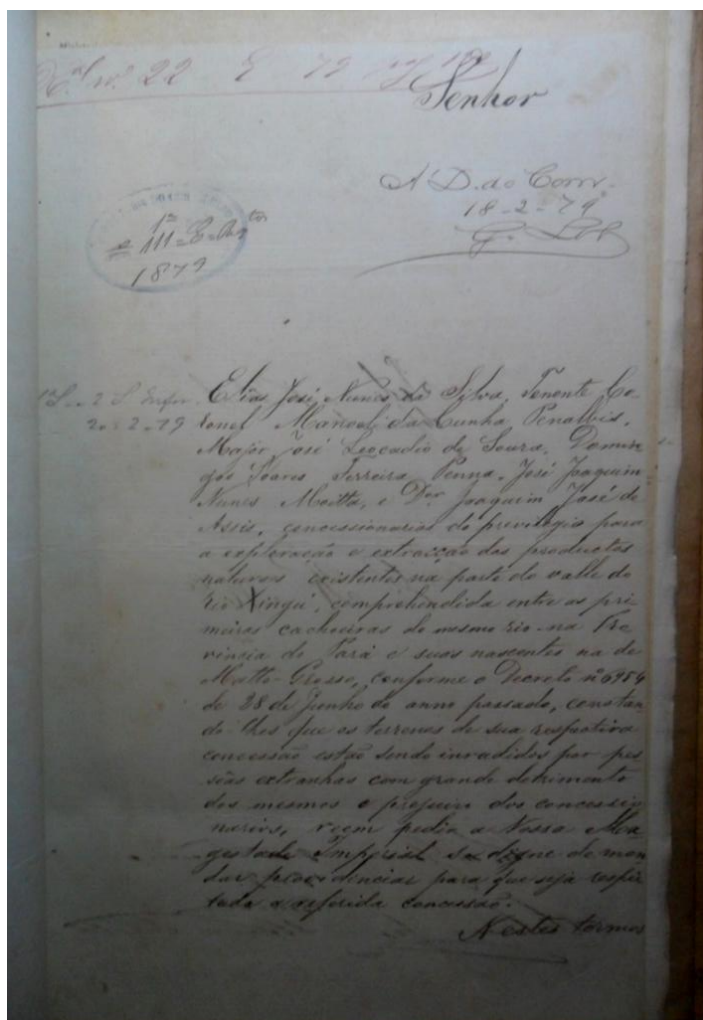 22 E 79
Senhor
A D. do Com.
18-2-79
1879
20-2-79
Elias José Nunes da Silva, Tenente Co-
ronel Manoel da Cunha Penalbis,
Major José Leocadio de Souza, Domin
gos Soares Ferreira Penna, José Joaquim
Nunes Moitta, e Dor Joaquim José de
Assis, concessionarios do previlegio para
a exploração e extracção dos productos
naturaes existentes na parte do valle do
rio Xingú, comprehendida entre as pri
meiras cachoeiras do mesmo rio na Pro
vincia do Pará e suas nascentes na de
Matto-Grosso, conforme o Decreto nº 6954
de 28 de Junho do anno passado, constan
do-lhes que os terrenos de sua respectiva
concessão estão sendo invadidos por pes
sôas extranhas com grande detrimento
dos mesmos e prejuizo dos concessio
narios, veem pedir a Vossa Ma
gestade Imperial se digne de man
dar providenciar para que seja respei
tada a referida concessão.
Nestes termos